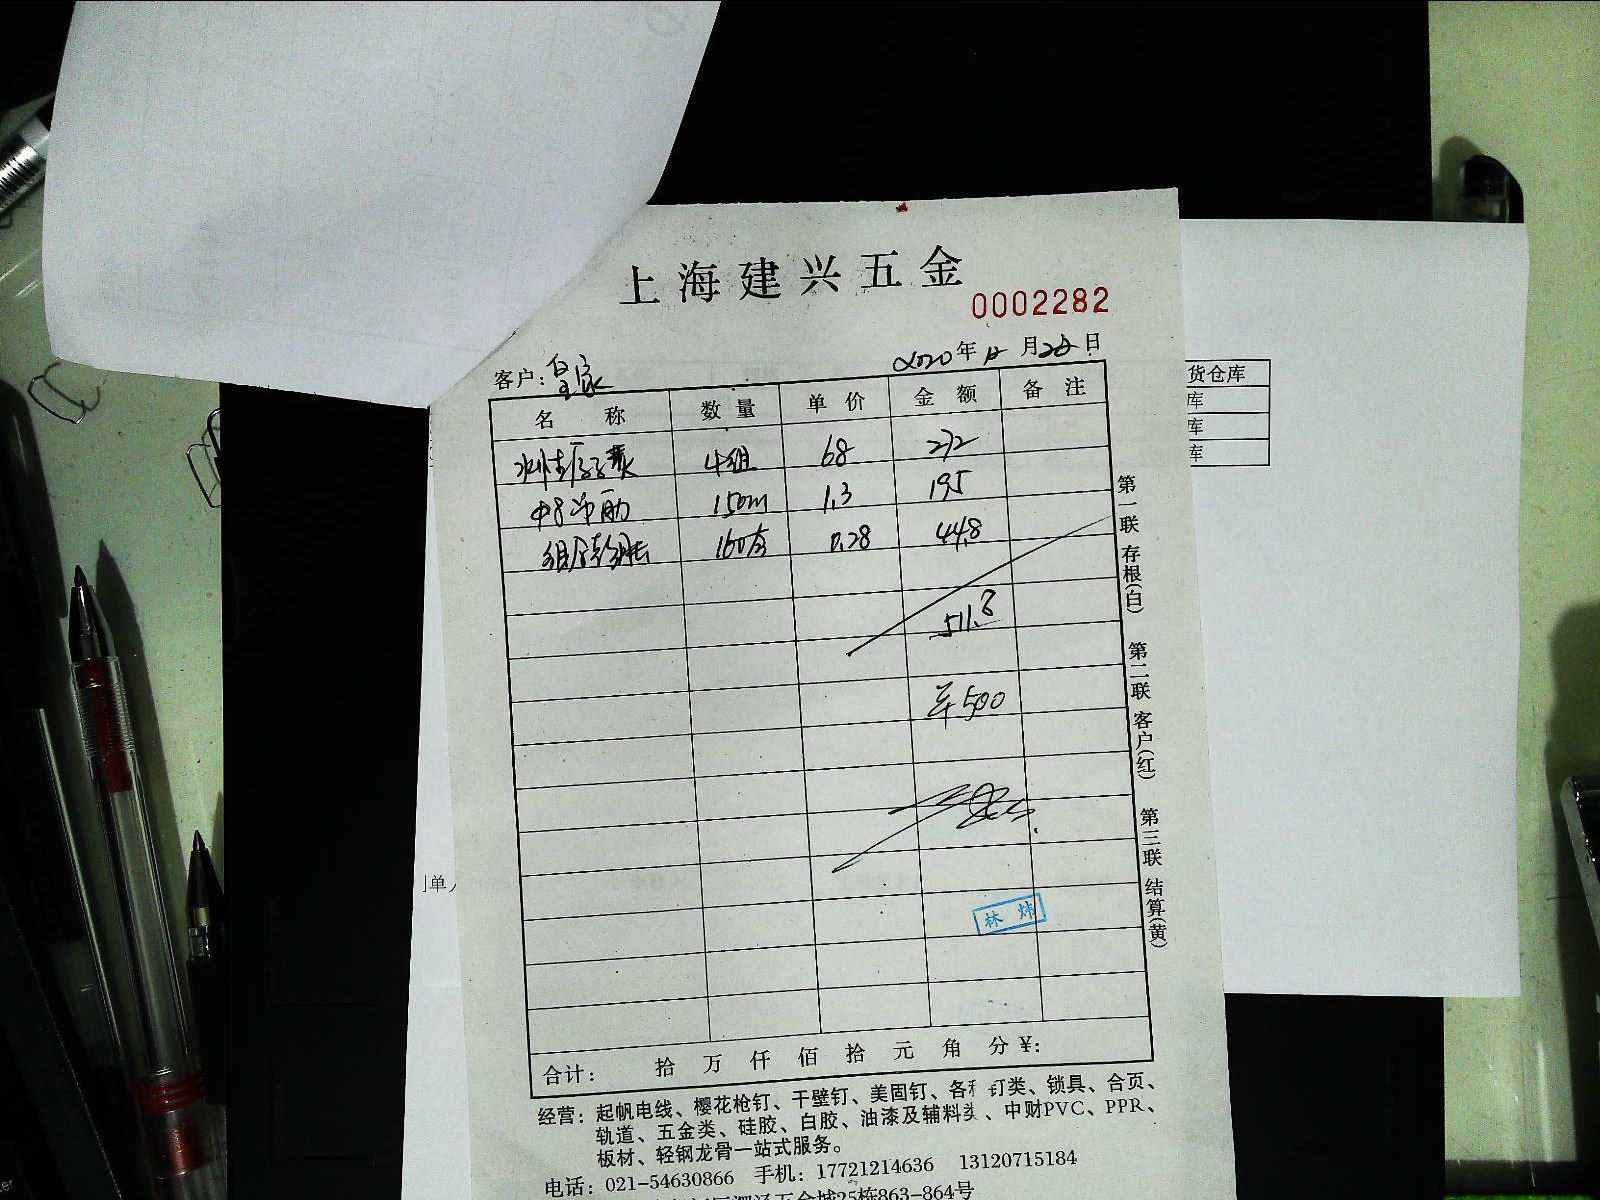 上海建兴五金
0002282
客户:皇家
2020年12月28日
名称 数量 单价 金额 备注
4组 68 272
150m 1.3 195
160 0.28 44.8
511.8
500
林炜
合计: 拾 万 仟 佰 拾 元 角 分 ¥:
经营: 起帆电线、樱花枪钉、干壁钉、美固钉、各种钉类、锁具、合页、
轨道、五金类、硅胶、白胶、油漆及辅料类、中财PVC、PPR、
板材、轻钢龙骨一站式服务。
电话: 021-54630866 手机: 17721214636 13120715184
五金城25栋863-864号
第一联 存根(白) 第二联 客户(红) 第三联 结算(黄)
货仓库
库
库
库
单